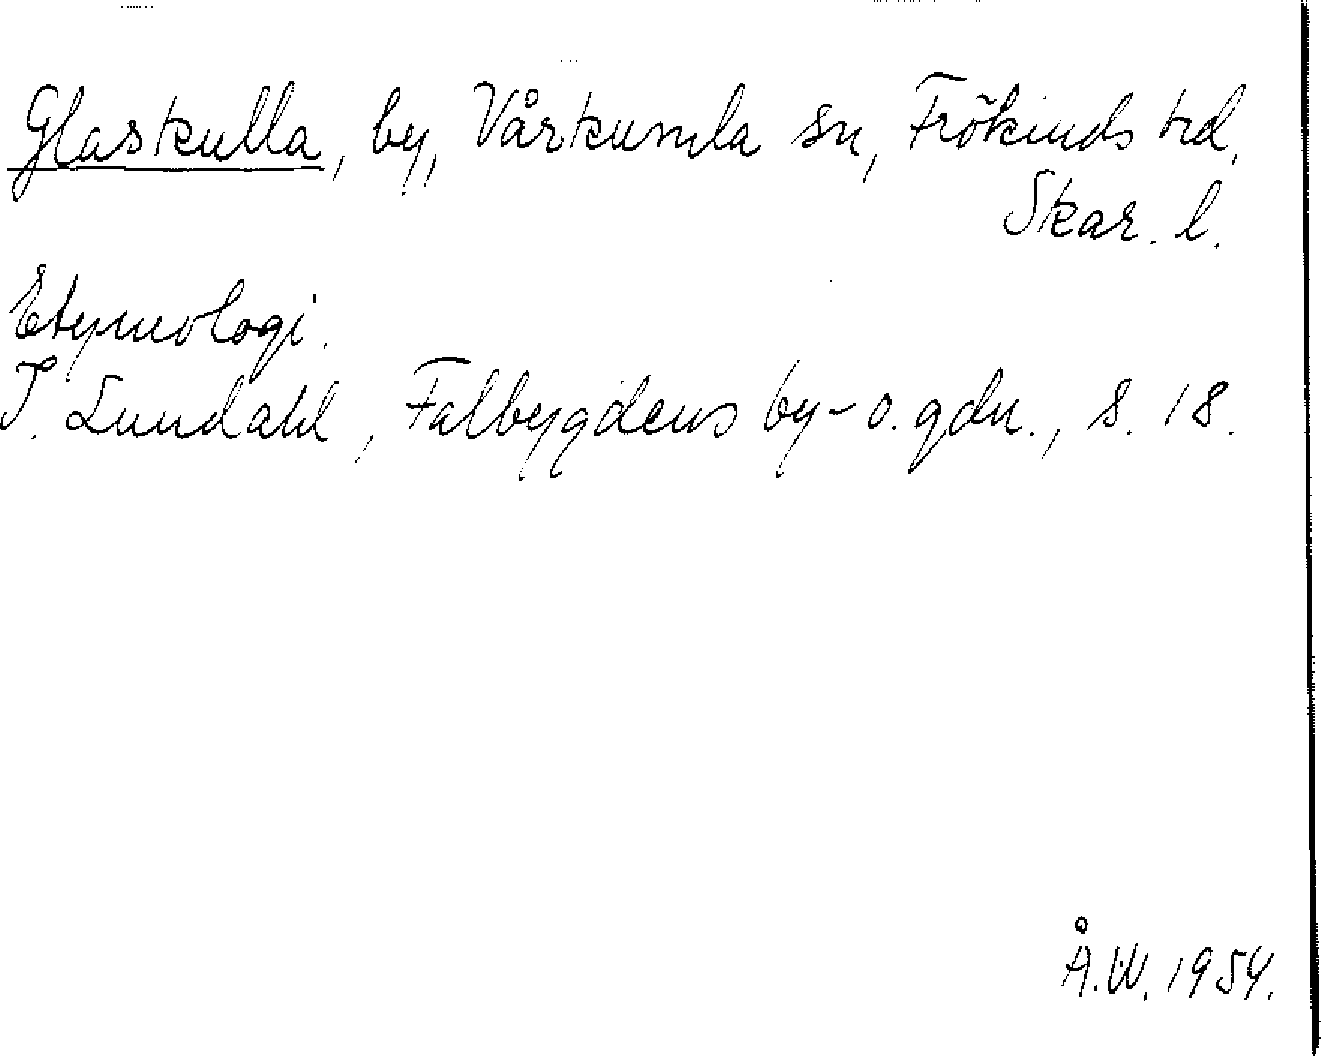 Glaskulla, by, Vårkumla sn, Frökinds hd,
Skar. l.
Etymologi.
I. Lundahl, Falbygdens by- o. gdn., s. 18.
Å.W. 1954.